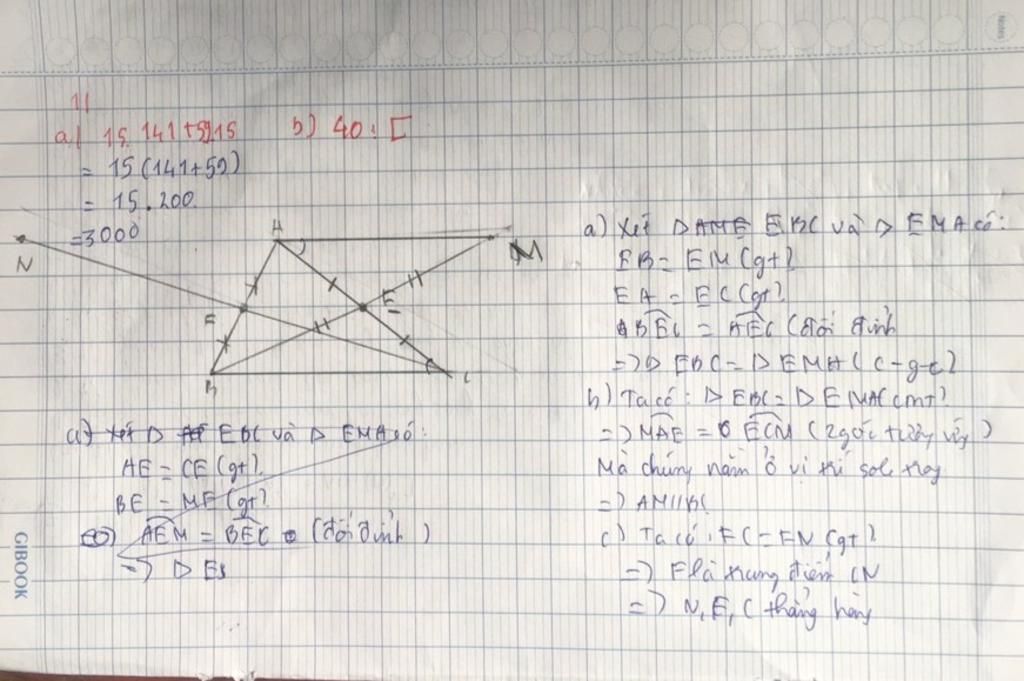 1)
a) 15.141+59.15
b) 40:[
= 15(141+59)
= 15.200
=3000
N
A
M
F
E
B
C
a) Xét Δ EBC và Δ EMA có:
AE = CE (gt)
BE = ME (gt)
AEM = BEC (đối đỉnh)
=> Δ EB
a) Xét Δ AME EBC và Δ EMA có:
EB = EM (gt)
EA = EC (gt)
BEC = AEC (đối đỉnh
=> Δ EBC = Δ EMA (c-g-c)
b) Ta có: Δ EBC = Δ EMA (cmT)
=> MAE = ECM (2 góc tương ứng)
Mà chúng nằm ở vị trí sole trog
=> AM//BC
c) Ta có: FC = FN (gt)
=> F là trung điểm CN
=> N, F, C thẳng hàng
GIBOOK